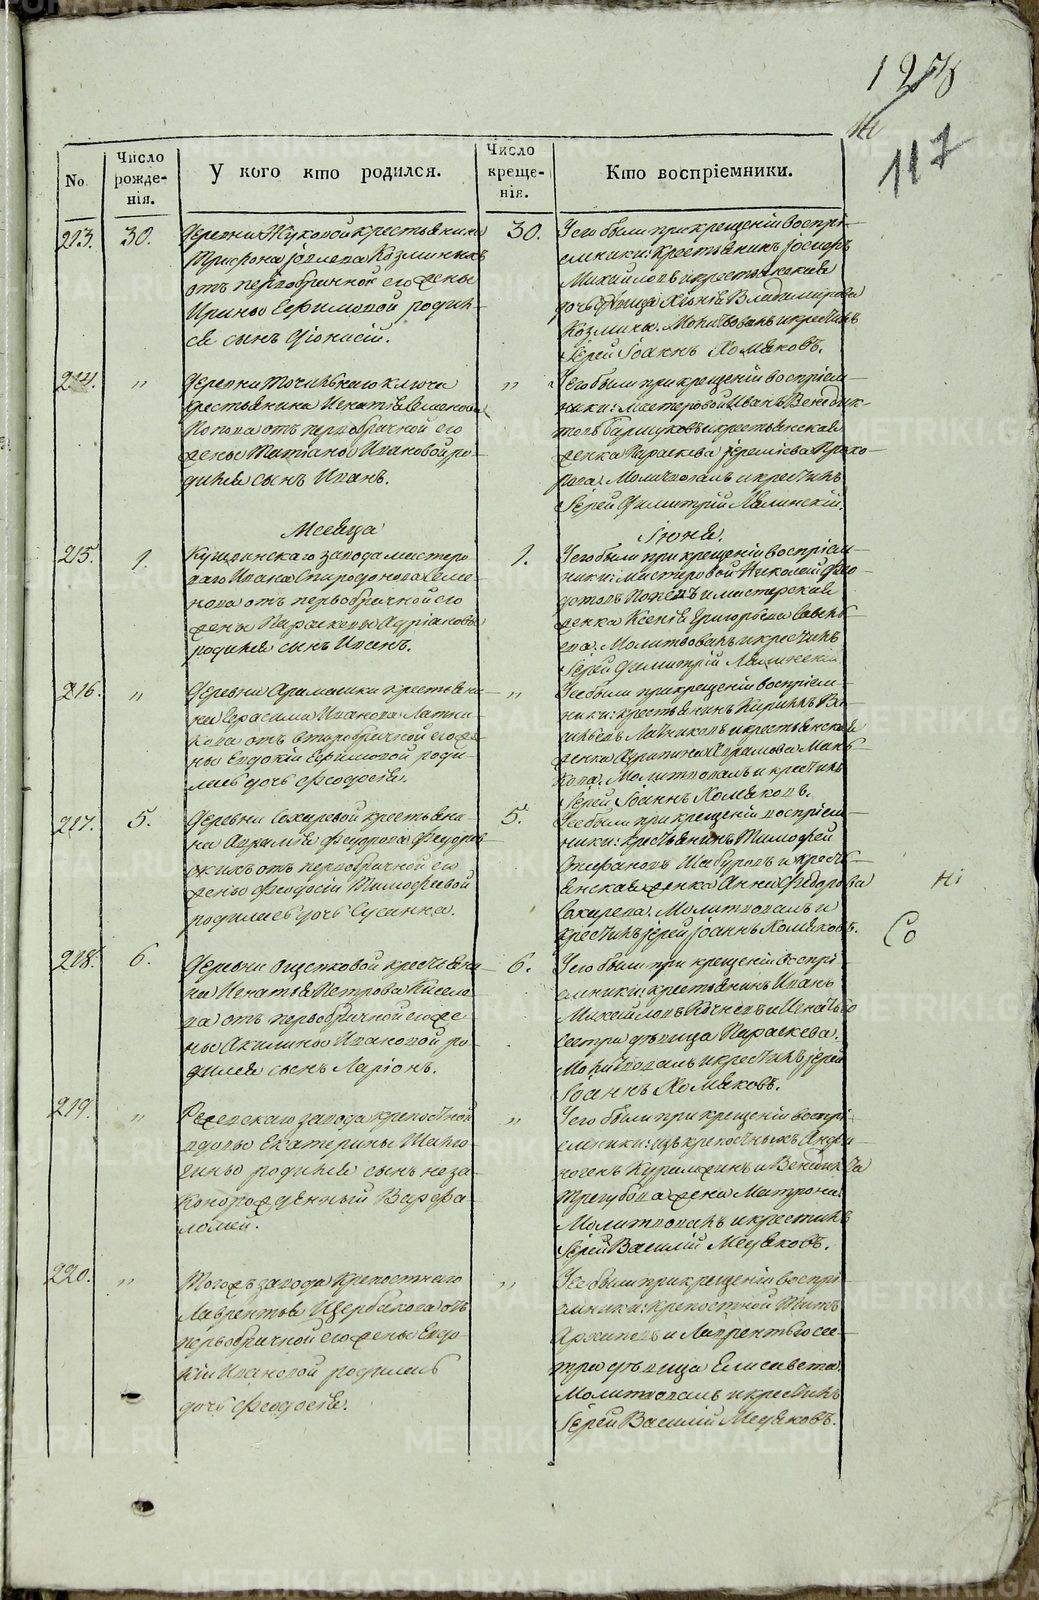 1258
117
No.
Число рожде-нія.
У кого кто родился.
Число креще-нія.
Кто воспріемники.
213.
30.
Деревни Жуковой крестьянина
Трифона Козминыхъ
отъ первобрачной его жены
Ирины Ефимовой родил-
ся сынъ Діонисій.
30.
У его были при крещеніи воспрі-
емники: крестьянинъ Іосифъ
Михайловъ и крестьянская
дочь дѣвица Хіонія Владимирова
Козмины. Молитвовалъ и крестилъ
Іерей Іоаннъ Хомяковъ.
214.
"
Деревни Точильнаго ключа
крестьянина Игнатія Семенова
Попова отъ первобрачной его
жены Татіаны Ивановой ро-
дился сынъ Иванъ.
"
У его были при крещеніи воспріем-
ники: мастеровой Иванъ Венедик-
товъ и крестьянская
женка Параскева Іереміева Прохо-
рова. Молитвовалъ и крестилъ
Іерей Димитрій Лявинскій.
Месяца
Іюня.
215.
1.
Кушвинскаго завода мастеро-
ваго Ивана Спиридонова Семе-
нова отъ первобрачной его
жены Параскевы Адріановы
родился сынъ
1.
У его были при крещеніи воспріем-
ники: мастеровой Николай Фео-
дотовъ Поповъ и мастерская
женка Ксенія Григорьева Савель-
ева. Молитвовалъ и крестилъ
Іерей Димитрій Лявинскій
216.
"
Деревни Арамашки крестьяни-
на Герасима Иванова Латни-
кова отъ второбрачной его же-
ны Евдокіи Ефимовой роди-
лась дочь Феодосія.
"
У ее были при крещеніи воспріем-
ники: крестьянинъ Кириллъ Ва-
сильевъ Латниковъ и крестьянская
женка Агрипина Абрамова Мань-
кова. Молитвовалъ и крестилъ
Іерей Іоаннъ Хомяковъ.
217.
5.
Деревни Сохаревой крестьяни-
на Авраамія Феодорова Федоров-
скихъ отъ первобрачной его
жены Феодосіи Тимофѣевой
родилась дочь Сусанна.
5.
У ее были при крещеніи воспріем-
ники: крестьянинъ Тимофей
Стефановъ Шабуровъ и кресть-
янская женка Анна Федорова
Сохарева. Молитвовалъ и
крестилъ Іерей Іоаннъ Хомяковъ.
218.
6.
Деревни Ощепковой крестьяни-
на Игнатья Петрова Киселе-
ва отъ первобрачной его же-
ны Акилины Ивановой ро-
дился сынъ Ларіонъ.
6.
У его были при крещеніи воспрі-
емники: крестьянинъ Иванъ
Михайловъ Кочневъ и Игнатьева
сестра дѣвица Параскева.
Молитвовалъ и крестилъ Іерей
Іоаннъ Хомяковъ.
219.
"
Режевскаго завода крепостной
вдовы Екатерины
родился сынъ неза-
конорожденный Варфо-
ломей.
"
У его были при крещеніи воспрі-
емники: изъ крепостныхъ
и Венедикта
Трегубова жена Матрона.
Молитвовалъ и крестилъ
Іерей Василій Медяковъ.
220.
"
Тогожъ завода крепостнаго
Лаврентья Щербакова отъ
первобрачной его жены Евдо-
кіи Ивановой родилась
дочь Феодосія.
"
У ее были при крещеніи воспрі-
емники: крепостной Титъ
Архиповъ и Лаврентьева се-
стра дѣвица Елисавета.
Молитвовалъ и крестилъ
Іерей Василій Медяковъ.
METRIKI.GASO-URAL.RU